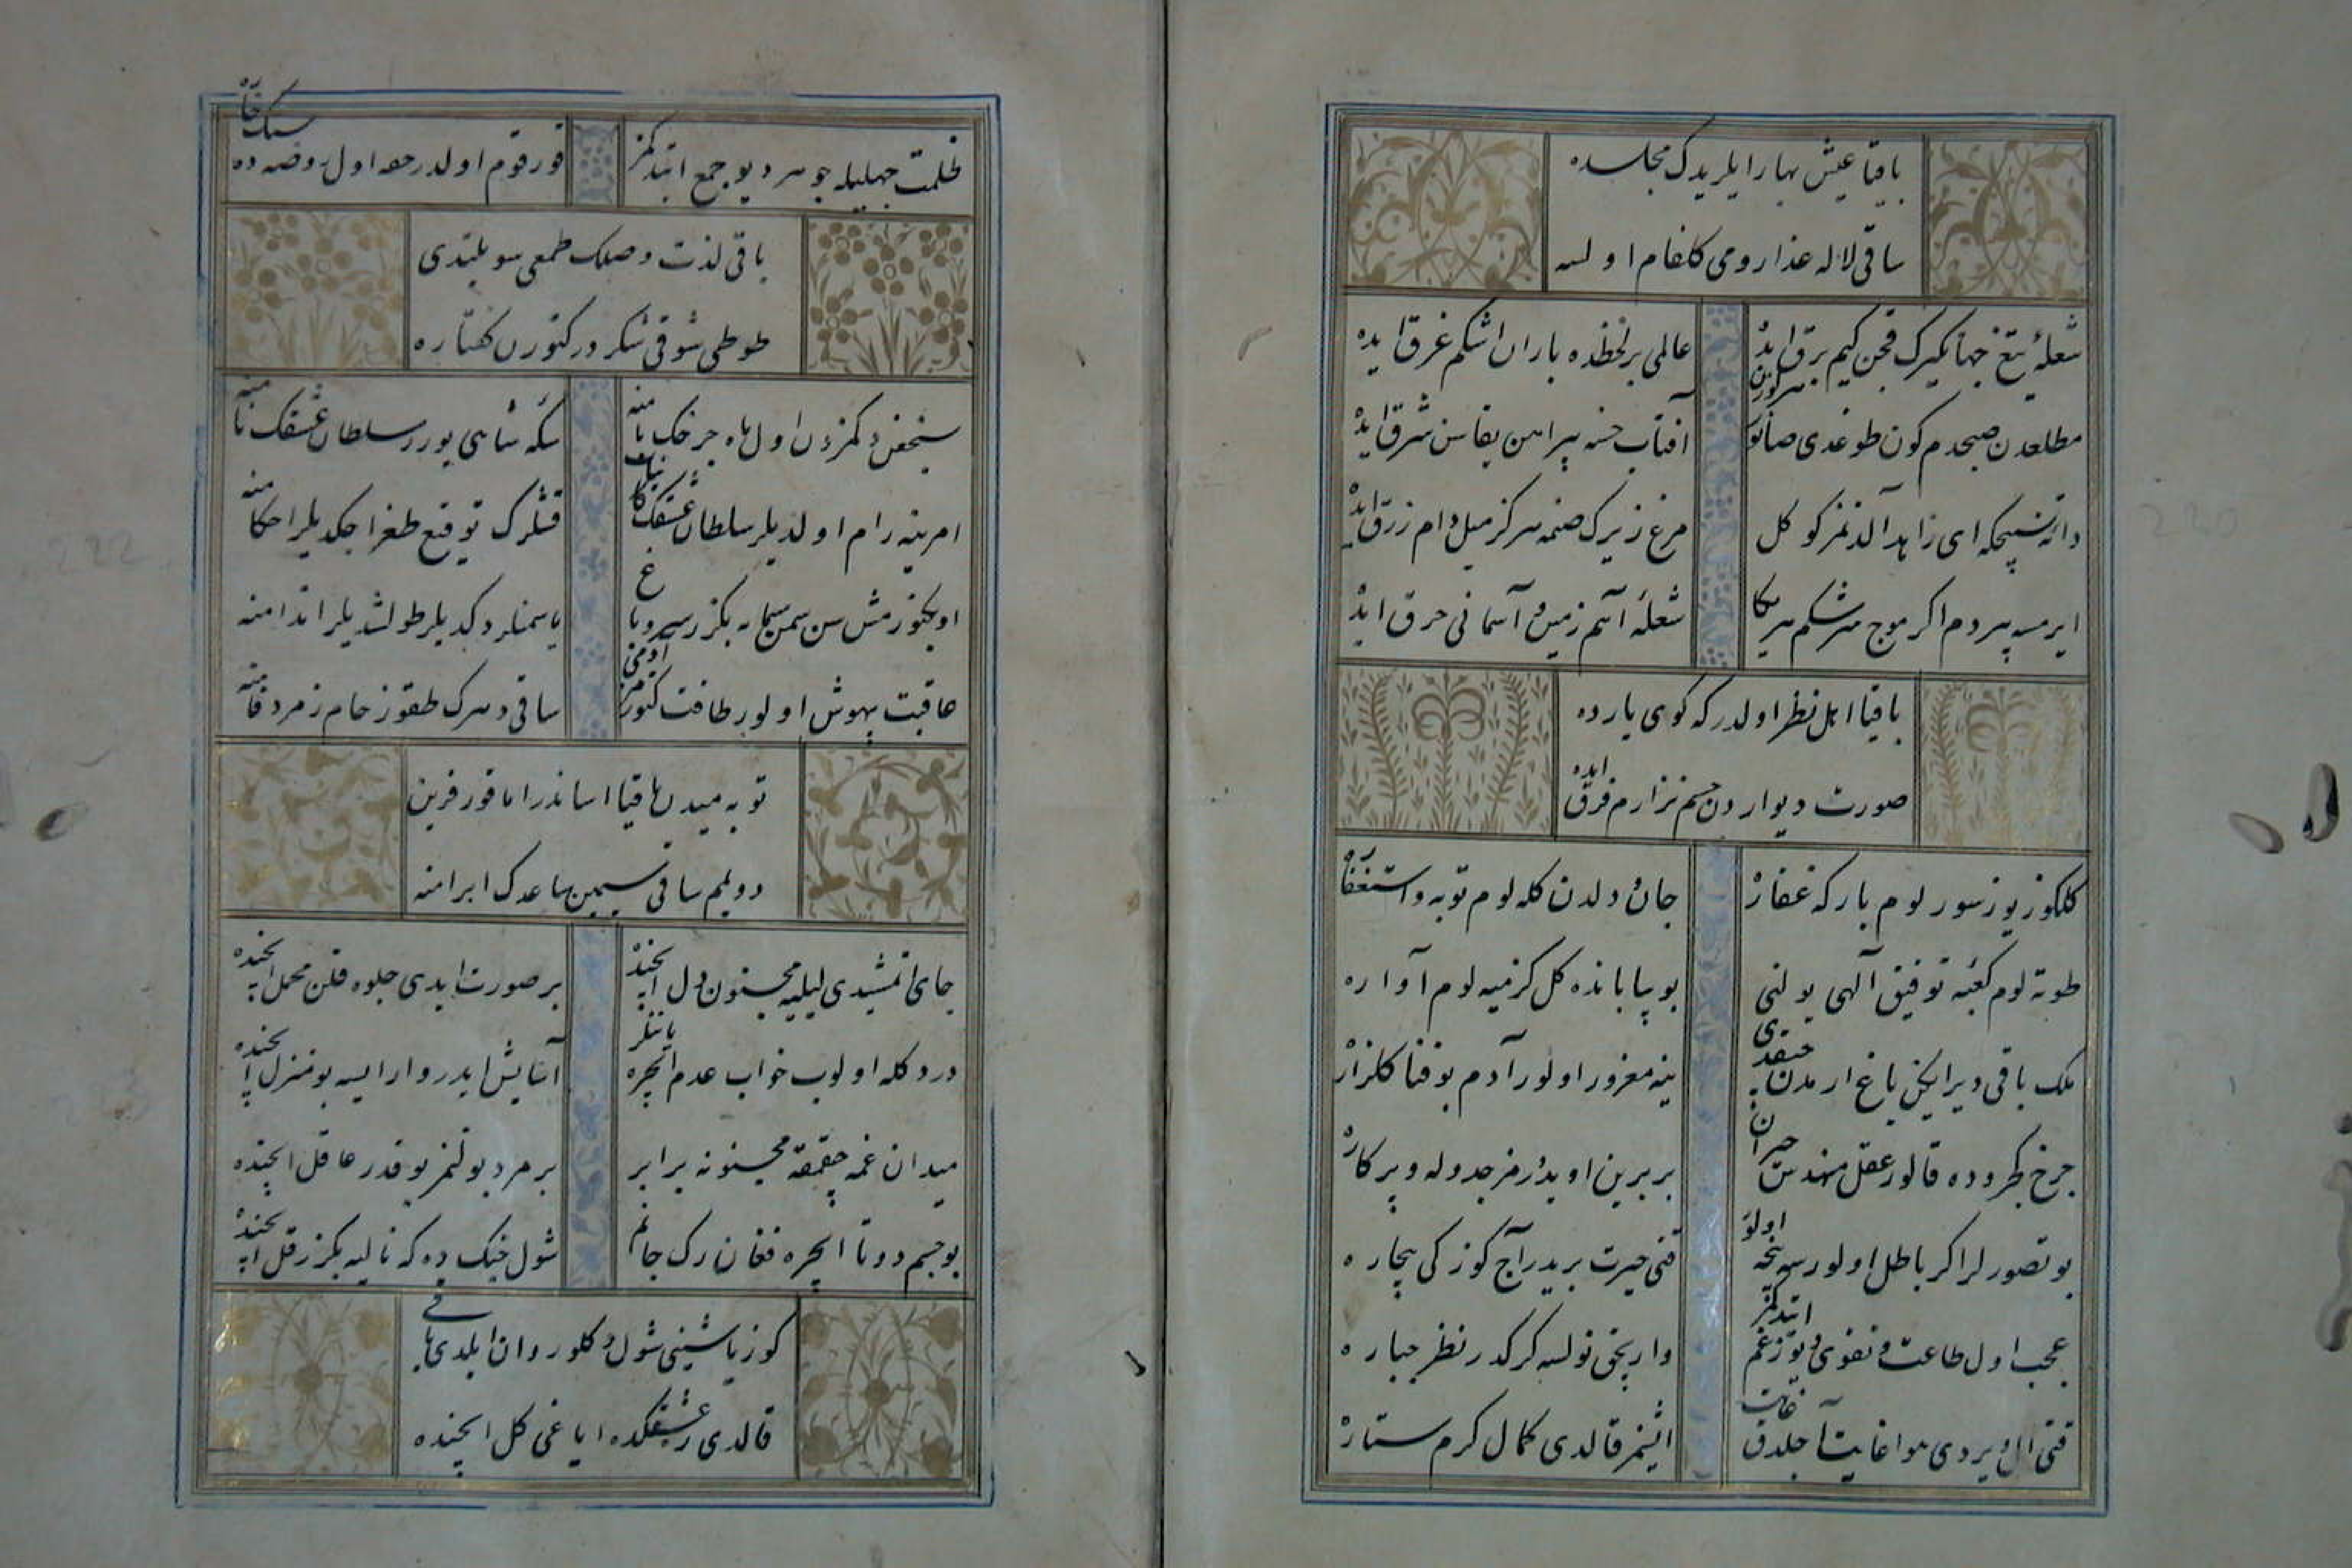 باقیا عیش بهار ایلریدک مجلسده
ساقی لاله عذار و می کلفام اولسه
شعلهٔ تیغ جهانکیرک قچن کیم برق ایده
عالمی بر لحظه ده باران اشکم غرق ایده
مطلعدن صبحدم کون طوغدی صانور
آفتاب حسنه پیراهن یقاسن شرق ایده
دانهٔ تسبیحکه ای زاهد آلدنمز کوکل
مرغ زیرک صنمه هرکز میل دام زرق ایده
ایرمسه هر دم اکر موج سرشکم هر یکا
شعلهٔ آهم زمین و آسمانی حرق ایده
باقیا اهل نظر اولدر که کوی یارده
صورت دیواردن جسم نزارم فرق ایده
کلکوز یوز سوره لوم بارکه غفاره
جان و دلدن کله لوم توبه و استغفاره
طوته لوم کعبهٔ توفیق آلهی یولنی
بو بیابانده کل کزمیه لوم آواره
ملک باقی دیر ایکن باغ ارمدن چیقدی
ینه مغرور اولور آدم بو فنا کلزاره
چرخ کجروده قالور عقل مهندس حیران
بربرین اویدرمز جدوله و پرکاره
بو تصورلر اکر باطل اولورسه نیجه اولور
قنی حیرت بریدر آج کوزکی بیچاره
عجب اول طاعت و تقوی دوزغم ایتدکمز
واریجق نولسه کرکدر نظر جباره
قتی ال ویردی هوا غایت آجلدق غایت
ایشمز قالدی کمال کرم ستاره
ظلمت جهلیله جوهر دیو جمع ایتدکمز
قورقوم اولدر حقه اول روضه ده سنک خاره
باقی لذت وصلک طمعی سویلتدی
طوطی شوقی شکردر کتورن کفتاره
سکه شاهی یورر سلطان عشقک نامنه
امرینه رام اولدیلر سلطان عشقک کائنات
قشلرک توقیع طغرا چکدیلر احکامنه
یاسمنلر دکدیلر طولشدیلر اندامنه
عاقبت بیهوش اولور طاقت کتورمز آدمی
ساقی دهرک طقوز جام زمرد فامنه
توبه میدن باقیا اساندر اما قورقرین
دویمیم ساقی سیمین ساعدک ابرامنه
جای ایتمشیدی لیلییه مجنون دل ایچنده
بر صورت ایدی جلوه قلن محمل ایچنده
درد کله اولوب خواب عدم ایچره یاتنلر
آسایش ایدر وار ایسه بو منزل ایچنده
میدان غمه چقمغه مجنونه برابر
بر مرد بولنمز بو قدر عاقل ایچنده
بو جسم دوتا ایچره فغان رک جانم
شول چنک ده که نالیه بکزر قل ایچنده
کوز یاشینی شول دکلو روان ایلدی باقی
قالدی ره عشقکده ایاغی کل ایچنده